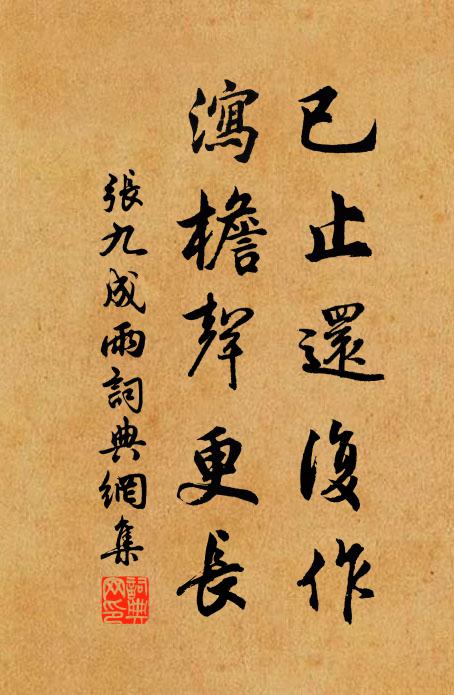 已止還復作
瀉檐聲更長
張九成雨詞典網集
詞典网印